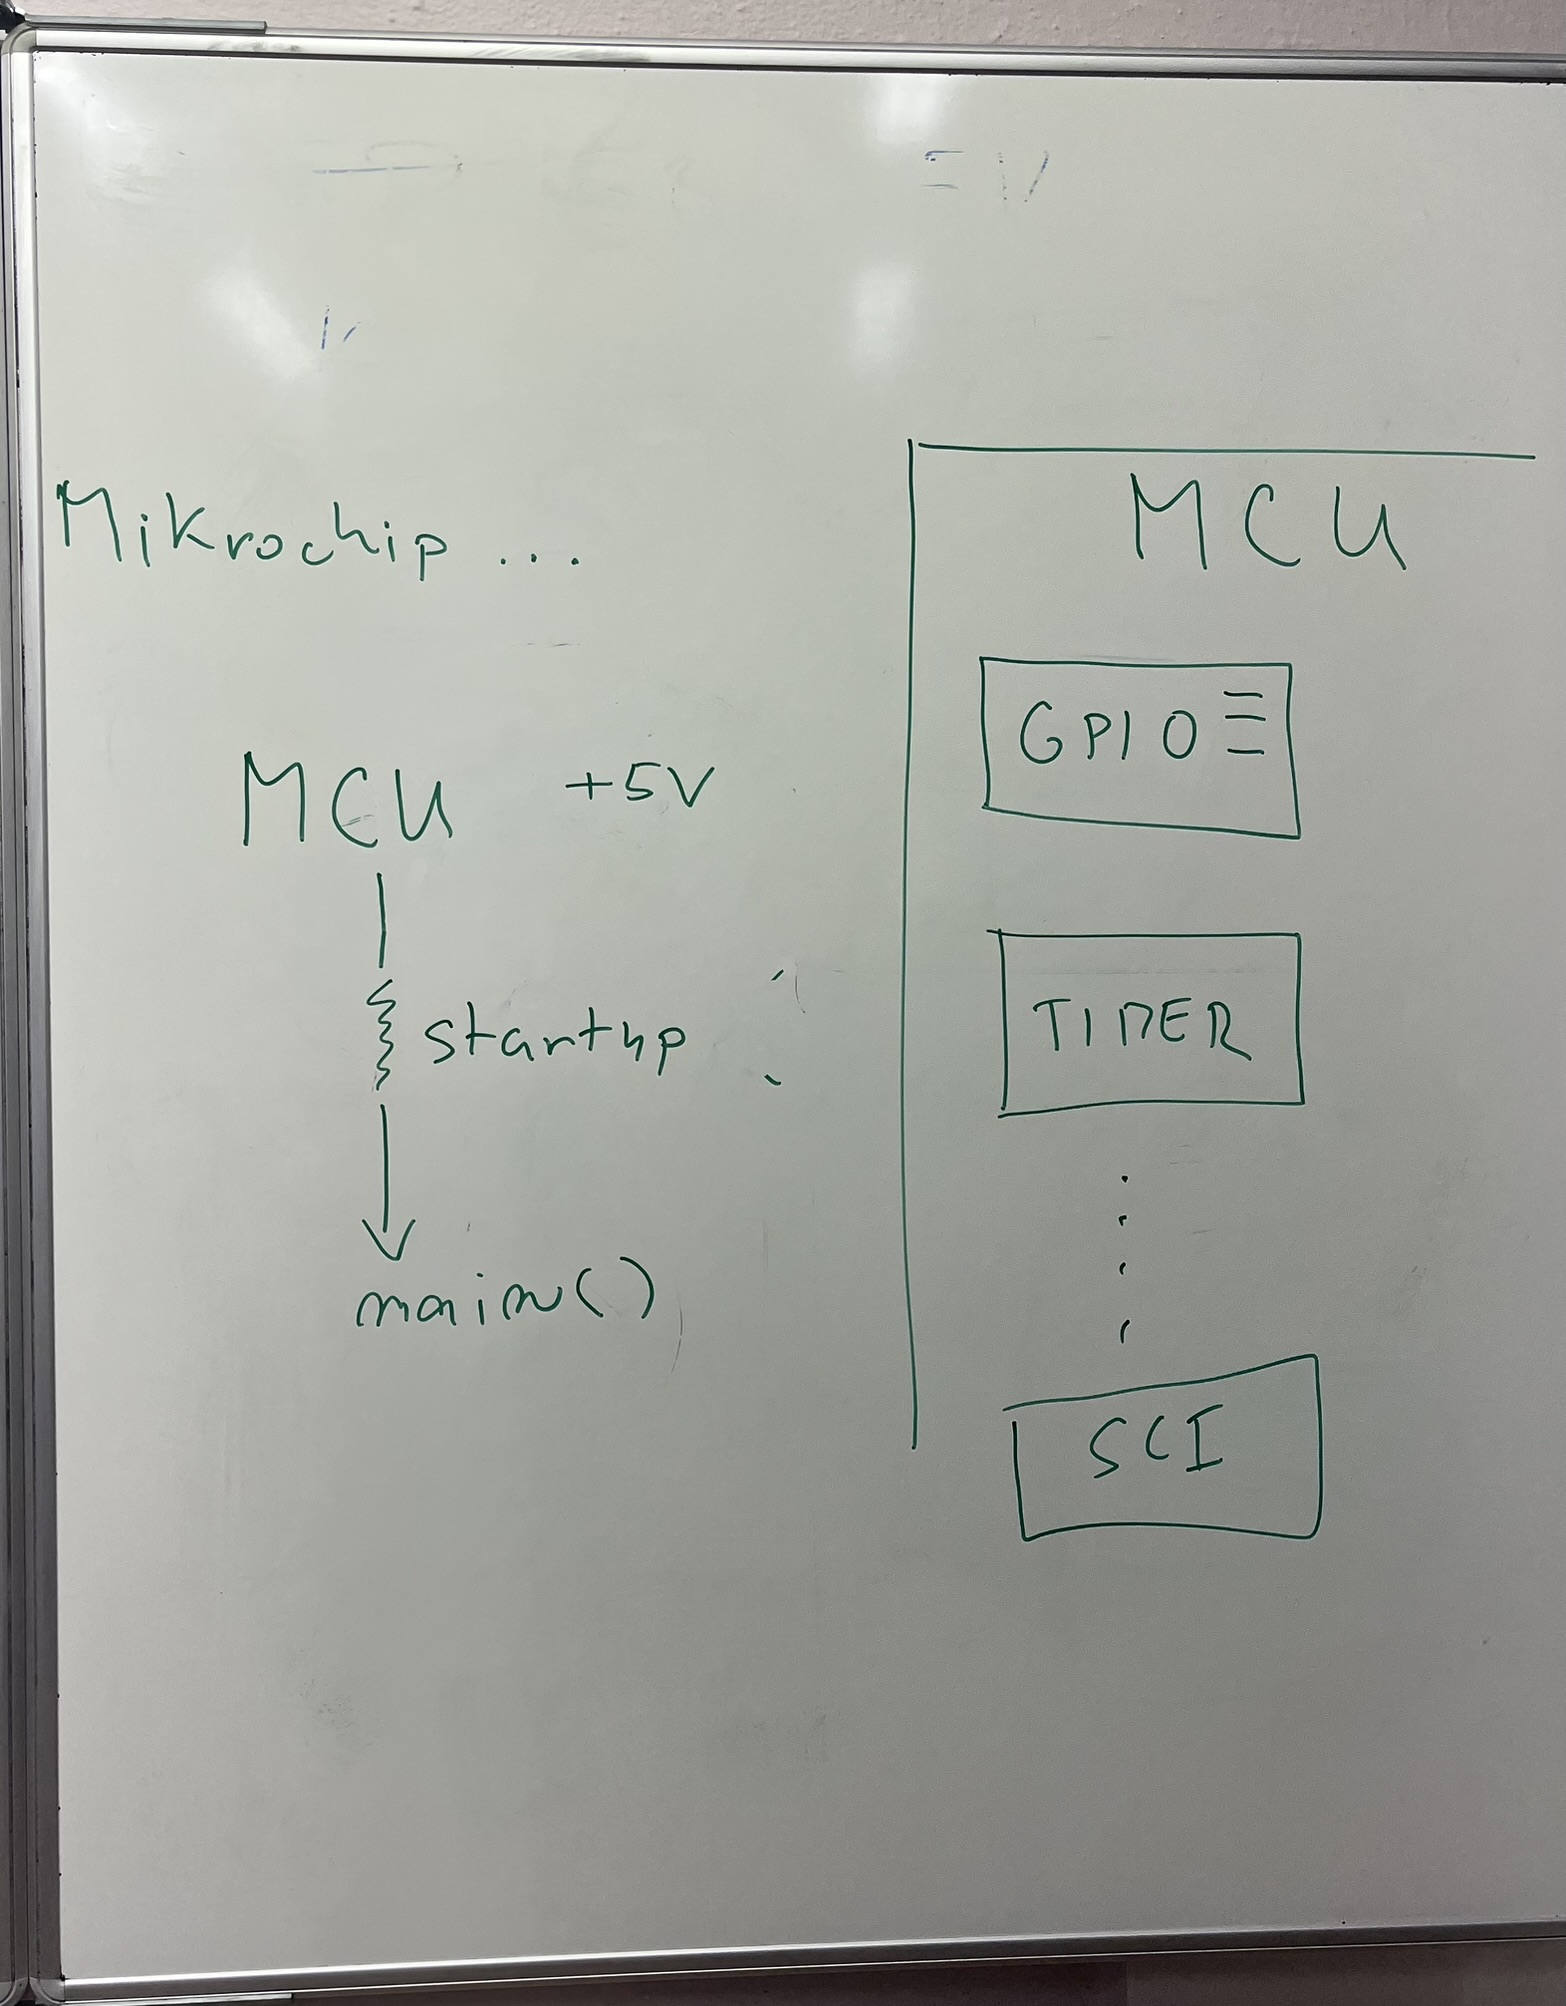 Mikrochip ...
MCU +5V
startup
main()
MCU
GPIO
TIMER
SCI